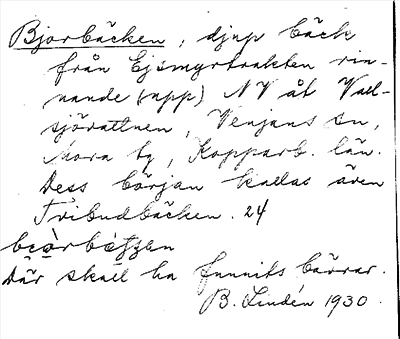 Bjorbäcken, djup bäck
från Ejsmyrtrakten rin-
nande (upp) NV åt Vall-
sjörattnen, Venjans sn,
Mora tg, Kopparb. län.
Dess början kallas även
Tvibudbäcken. 24
Där skall ha funnits bävrar.
B. Lindén 1930.